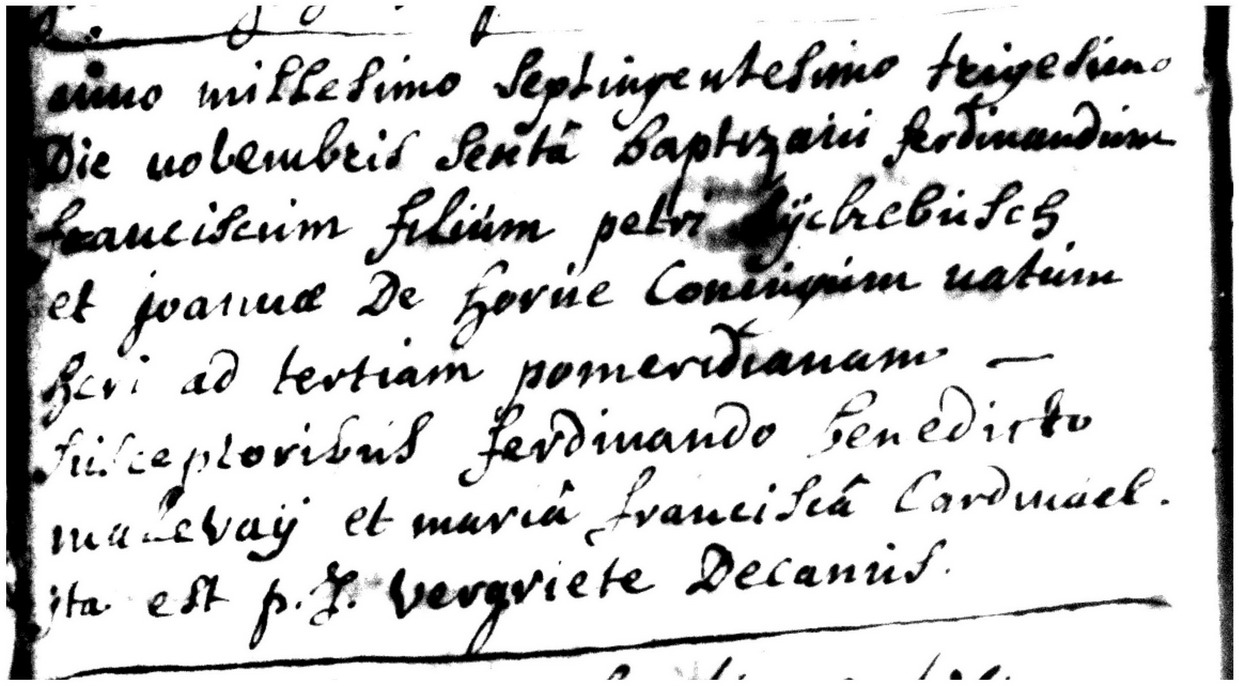 anno millesimo septingentesimo trigesimo
Die novembris sextâ baptizavi ferdinandum
franciscum filium petri
et joannæ De Horne Coniugum natum
heri ad tertiam pomeridianam —
susceptoribus ferdinando benedicto
et mariâ franciscâ Cardinael.
ita est p. J. Vergriete Decanus.